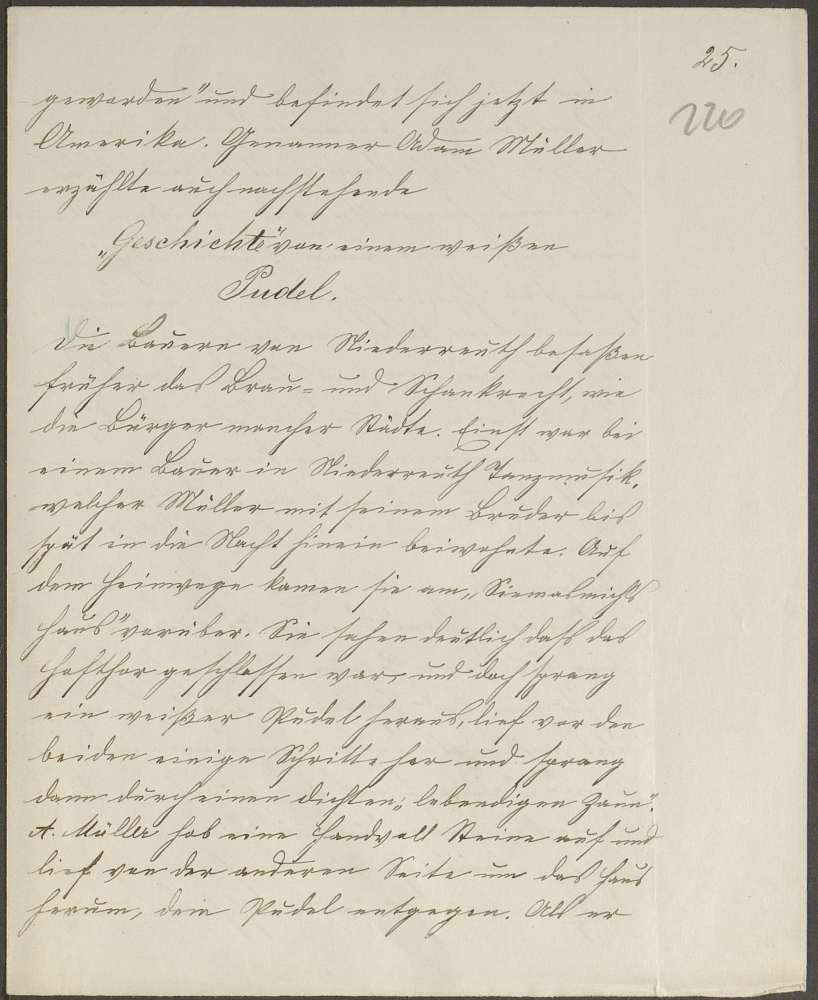 25.
220
geworden" und befindet sich jetzt in
Amerika. Genannter Adam Müller
erzählte auch nachstehende
„Geschichte" von einem weißen
Pudel.
Die Bauern von Niederreuth besaßen
früher das Brau- und Schankrecht, wie
die Bürger mancher Städte. Einst war bei
einem Bauer in Niederreuth Tanzmusik,
welcher Müller mit seinem Bruder bis
spät in die Nacht hinein beiwohnte. Auf
dem Heimwege kamen sie am
Haus" vorüber. Sie sahen deutlich daß das
Hofthor geschlossen war, und doch sprang
ein weißer Pudel heraus, lief vor den
beiden einige Schritte her und sprang
dann durch einen dichten „lebendigen Zaun".
A. Müller hob eine Handvoll Steine auf und
lief von der anderen Seite um das Haus
herum, dem Pudel entgegen. Als er